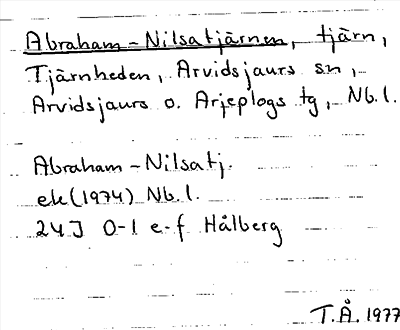 Abraham-Nilsatjärnen, tjärn,
Tjärnheden, Arvidsjaurs sn,
Arvidsjaurs o. Arjeplogs tg, Nb.l.
Abraham-Nilsatj.
ek(1974) Nb.l.
24J 0-1 e-f Hålberg
T.Å. 1977